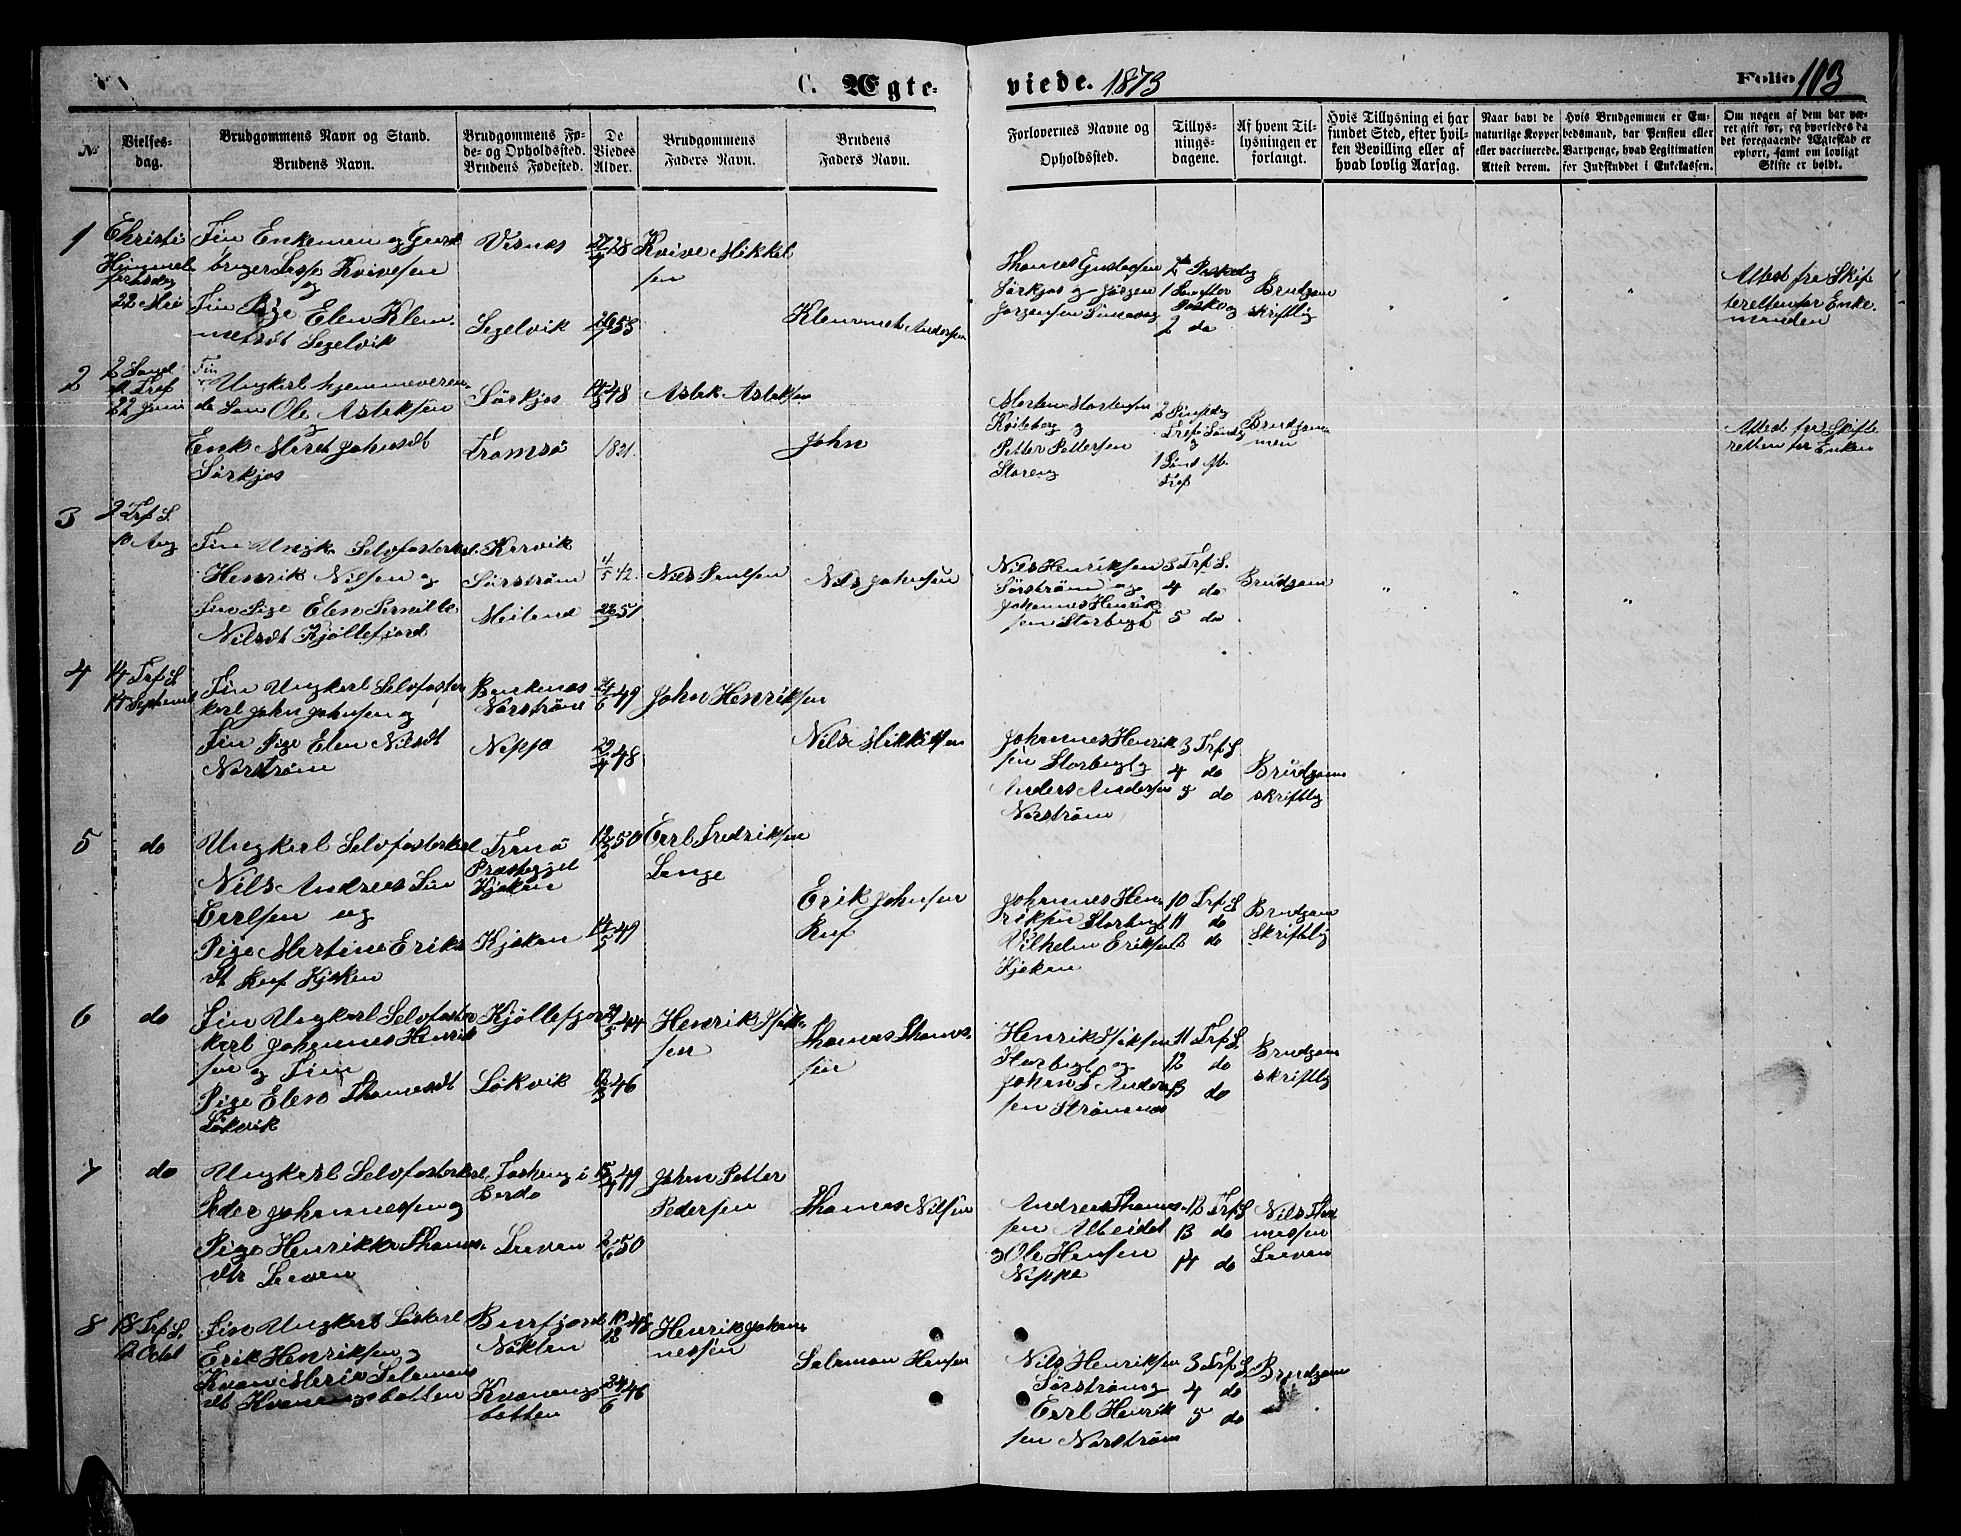 C. Ægte-
viede. 1873
Folio 103
No
Vielses-
dag.
Brudgommens Navn og Stand.
Brudens Navn.
Brudgommens Fø-
de- og Opholdssted.
Brudens Fødested.
De
Viedes
Alder.
Brudgommens
Faders Navn.
Brudens
Faders Navn.
Forlovernes Navne og
Opholdssted.
Tillys-
nings-
dagene.
Af hvem Til-
lysningen er
forlangt.
Hvis Tillysning ei har
fundet Sted, efter hvil-
ken Bevilling eller af
hvad lovlig Aarsag.
Naar havt de
naturlige Kopper
eller vaccinerede.
Attest derom.
Hvis Brudgommen er Em-
bedsmand, har Pension eller
Vartpenge, hvad Legitimation
for Indskuddet i Enkekassen.
Om nogen af dem har væ-
ret gift før, og hvorledes da
det foregaaende Ægteskab er
ophørt, samt om lovligt
Skifte er holdt.
1
Christi
Himmel
fartsdag
22 Mai
Fin Enkeman og Gaard
bruger Kvivesen
og
Fin Pige Elen Klem-
metsdt Segelvik
Vernes
Segelvik
Kvive Mikkel
sen
Klemmet Andersen
Thomas Gustavsen
Sørkjos og Jørgen
Jørgensen
1 Søn efter
Paske
2 do
Brudgom
skriftlig
Attest fra Skif
teretten for Enke-
manden
2
2 Sønd
Tref
22 Juni
Fin
Ungkarl hjemmeveren-
de Søn Ole Aslaksen
og
Enke Maret Johnsdt
Sørkjos
Sørkjos
Tromsø
14/3 48
1821.
Aslak Aslaksen
John
Morten Mortensen
og
Petter Pettersen
Storeng
2 Pinsedag
Tref Søndg
og
1 Sønd
Tref
Brudgom-
men
Attest fra Skifte
retten for Enken
3
2 Trf S.
10 Aug
Fin Ungk. Selvfosterkarl
Henrik Nilsen og
Fin Pige Elen Pernille
Nilsdt Kjøllefjord
Karvik
Sørstrøm
Meiland
4/5 42.
Nils Paulsen
Nils Johnsen
Nils Henriksen
Sørstrøm og
Johannes Henrik
sen Storbugt
3 Trf S.
4 do
5 do
Brudgom
4
14 Trf S.
14 September
Fin Ungkarl Selvfoster
karl John Johnsen og
Fin Pige Elen Nilsdt
Norstrøm
Norstrøm
24/6 49
29/4 48
John Henriksen
Nils Mikkelsen
Johannes Henrik
sen Storbugt
Anders Andersen
Norstrøm
3 Trf S.
4 do
5 do
Brudgom
skriftlig
5
do
Ungkarl Selvfosterkarl
Nils Andreas
Carlsen og
Pige Martine Eriks
dt Ruf Kjøken
Tranø
Præstegjel
Kjøken
Kjøken
14/5 49
Carl Fredriksen
Lange
Erik Johnsen
Ruf
Johannes Hen-
riksen Storbugt
Vilhelm Eriksen
Kjøken
10 Trf S.
11 do
12 do
Brudgom
skriftlig
6
do
Fin Ungkarl Selvfoster
karl Johannes Henrik
sen og Fin
Pige Elen Thomasdt
Løkvik
Kjøllefjord
Løkvik
Henrik Isak-
sen
Thomas Thomas-
sen
Henrik Isaksen
Storbugt og
Johan S Ander
sen Strømnes
11 Trf S.
12 do
13 do
Brudgom
skriftlig
7
do
Ungkarl Selvfosterkarl
Peder Johannesen og
Pige Henrikke Thomas-
dtr Leeven
Leeven
2/6 50
Johan Petter
Pedersen
Thomas Nilsen
Andreas Thomas-
sen Alteidet
Ole Hansen
Nippe
12 Trf S
13 do
14 do
Nils Tho
massen
Leeven
8
18 Trf S.
12 Octob
Fin Ungkarl Løskarl
Erik Henriksen og
Kvan Maria Salamons
dt Kvænangsbotten
Burfjord
Nøklen
Kvænangs
botten
24/6 46
Henrik Johan-
nessen
Salamon Hansen
Nils Henriksen
Sørstrøm og
Carl Henrik
sen Norstrøm
3 Trf S.
4 do
5 do
Brudgom